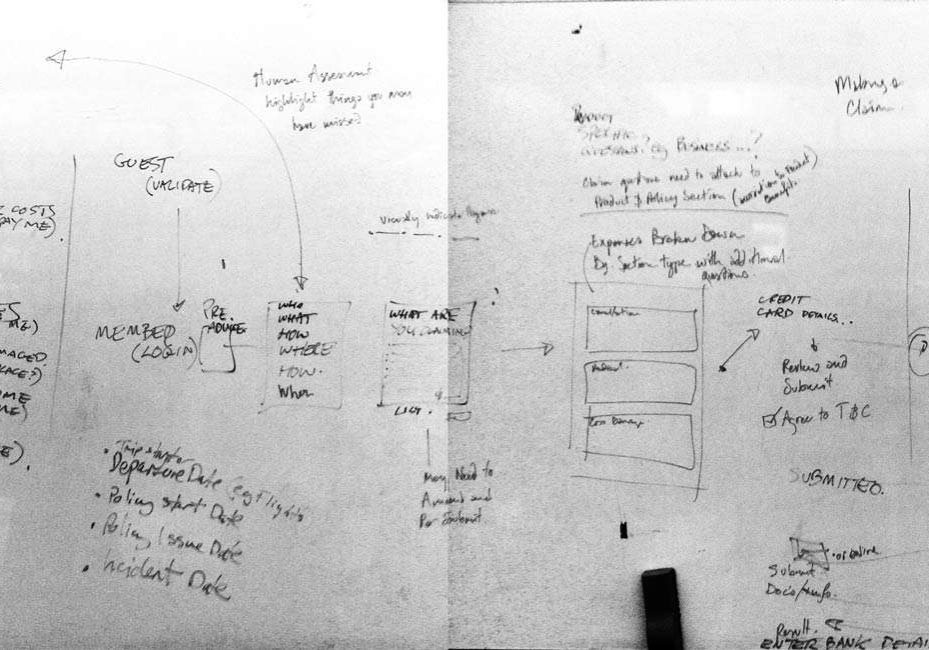 COSTS
PAY ME).
ME)
MAGED
ME)
E).
Human Assessment
highlight things you may
have missed
GUEST
(VALIDATE)
MEMBER
(LOGIN)
PRE.
WHO
WHAT
HOW
WHERE
HOW.
When
visually indicate
WHAT ARE
YOU CLAIMING
LIST.
May Need to
Amend and
Trip start or
Departure Date (eg Flights
Policy start Date
Policy Issue Date
Incident Date
SPECIFIC
QUESTIONS? eg BUSINESS...?
Claim questions need to attach to
Product & Policy Section
Expenses Broken Down
By Section type with additional
questions.
Cancellation
CREDIT
CARD DETAILS..
Review and
Submit
Agree to T&C
SUBMITTED.
or online
Submit
Docs/info.
Result.
ENTER BANK DETAI
Making a
Claim.